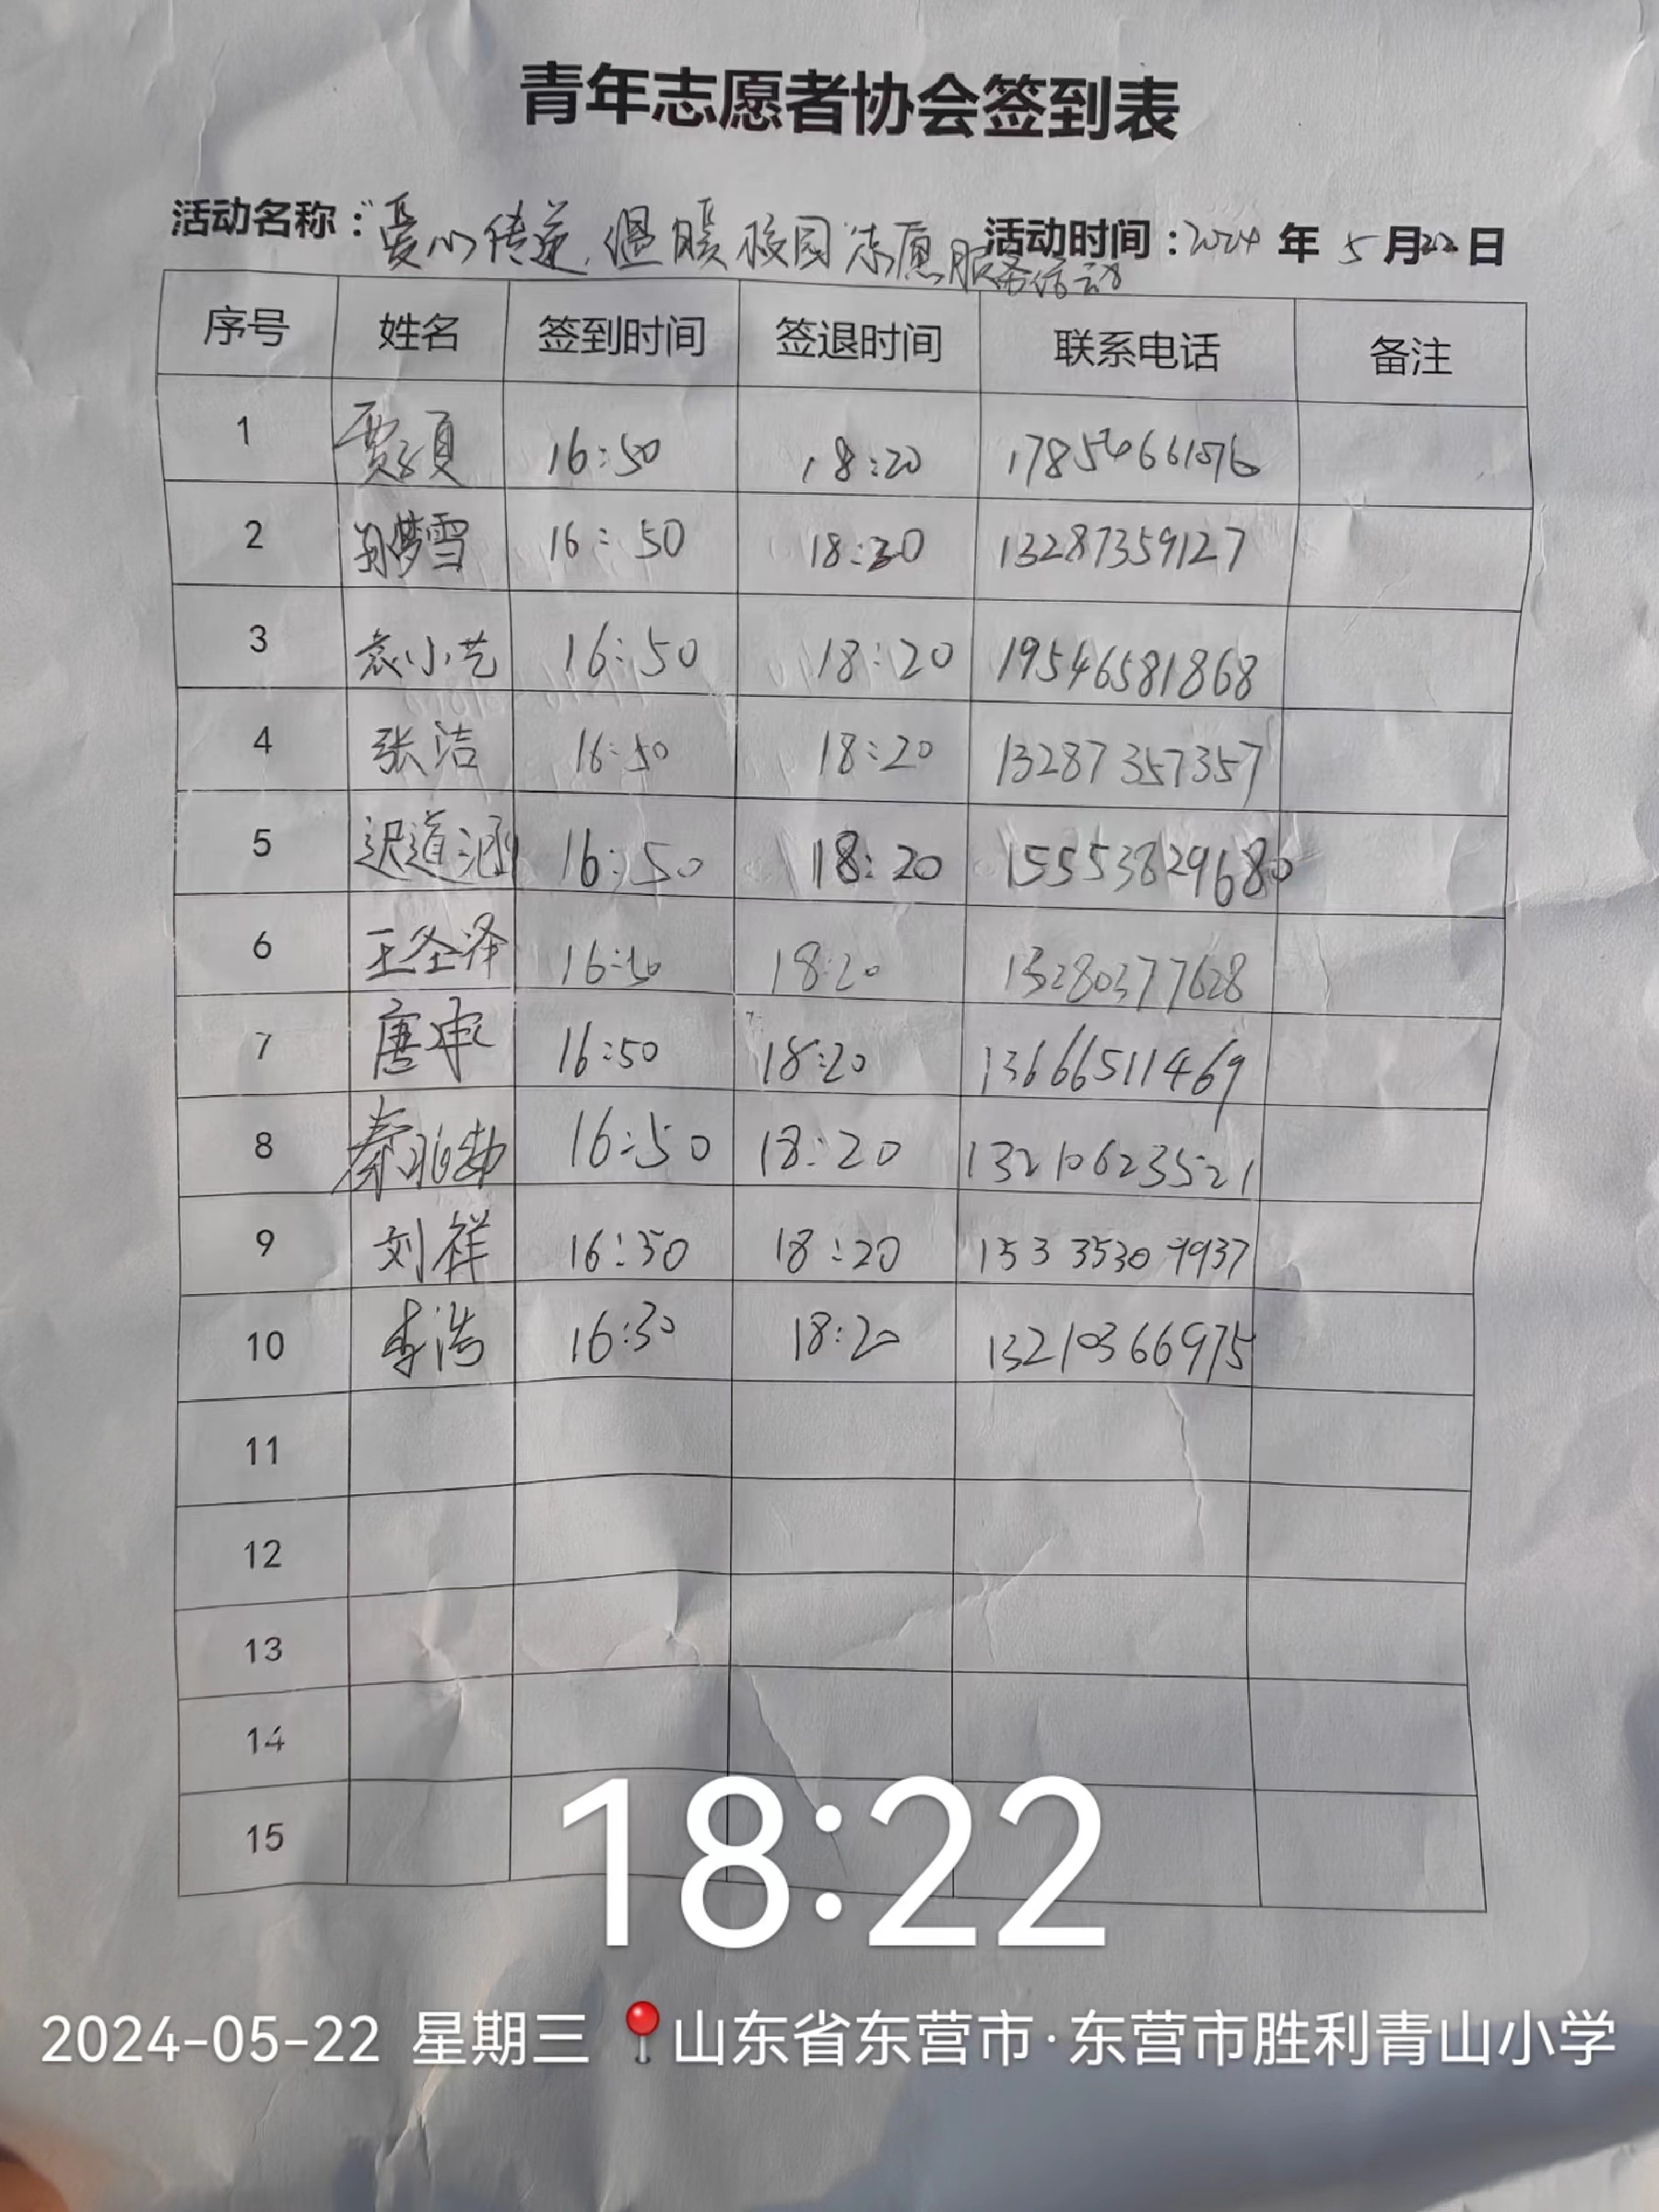 青年志愿者协会签到表
活动名称：“爱心传递，温暖校园”志愿服务活动 活动时间：2024 年 5 月 22 日
序号 姓名 签到时间 签退时间 联系电话 备注
1 贾 16:50 18:20
2 梦雪 16:50 18:20 13287359127
3 袁小艺 16:50 18:20 19546581868
4 张洁 16:50 18:20 13287357357
5 迟道涵 16:50 18:20 15553829680
6 王圣泽 16:50 18:20 13280377628
7 唐 16:50 18:20 13666511469
8 秦 16:50 18:20 13210623521
9 刘祥 16:50 18:20
10 李浩 16:30 18:20 13210366975
11
12
13
14
15
18:22
2024-05-22 星期三 📍山东省东营市·东营市胜利青山小学